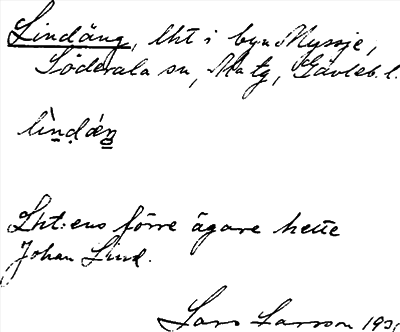 Lindäng, lht i byn Myssje,
Söderala sn, Ala tg, Gävleb. l.
lìndǽŋ
Lht:ens förre ägare hette
Johan Lind.
Lars Larsson 193